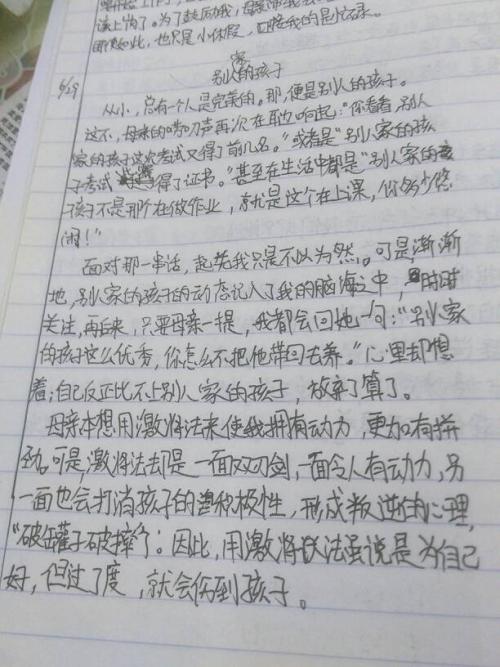 该上的了。为了鼓励我，母亲
即使如此，也只是小休假，迎接我的是忙碌。
别人家的孩子
6/29
从小，总有一个人是完美的。那，便是别人的孩子。
这不，母亲的唠叨声再次在耳边响起："你看看，别人
家的孩子这次考试又得了前几名。"或者是"别人家的孩
子考试 得了证书。"甚至在生活中都是"别人家的孩
孩子不是那个在做作业，就是这个在上课，你多少悠
闲！"
面对那一串话，起先我只是不以为然。可是，渐渐
地，别人家的孩子的动态记入了我的脑海之中，时时
关注，再后来，只要母亲一提，我都会回她一句："别人家
的孩子这么优秀，你怎么不把他带回去养。"心里却想
着；自己反正比不上别人家的孩子，放弃了算了。
母亲本想用激将法来使我拥有动力，更加有拼
劲。可是，激将法却是一面双刃剑，一面令人有动力，另
一面也会打消孩子的积极性，形成叛逆的心理，
"破罐子破摔了。因此，用激将法虽说是为自己
好，但过了度，就会伤到孩子。